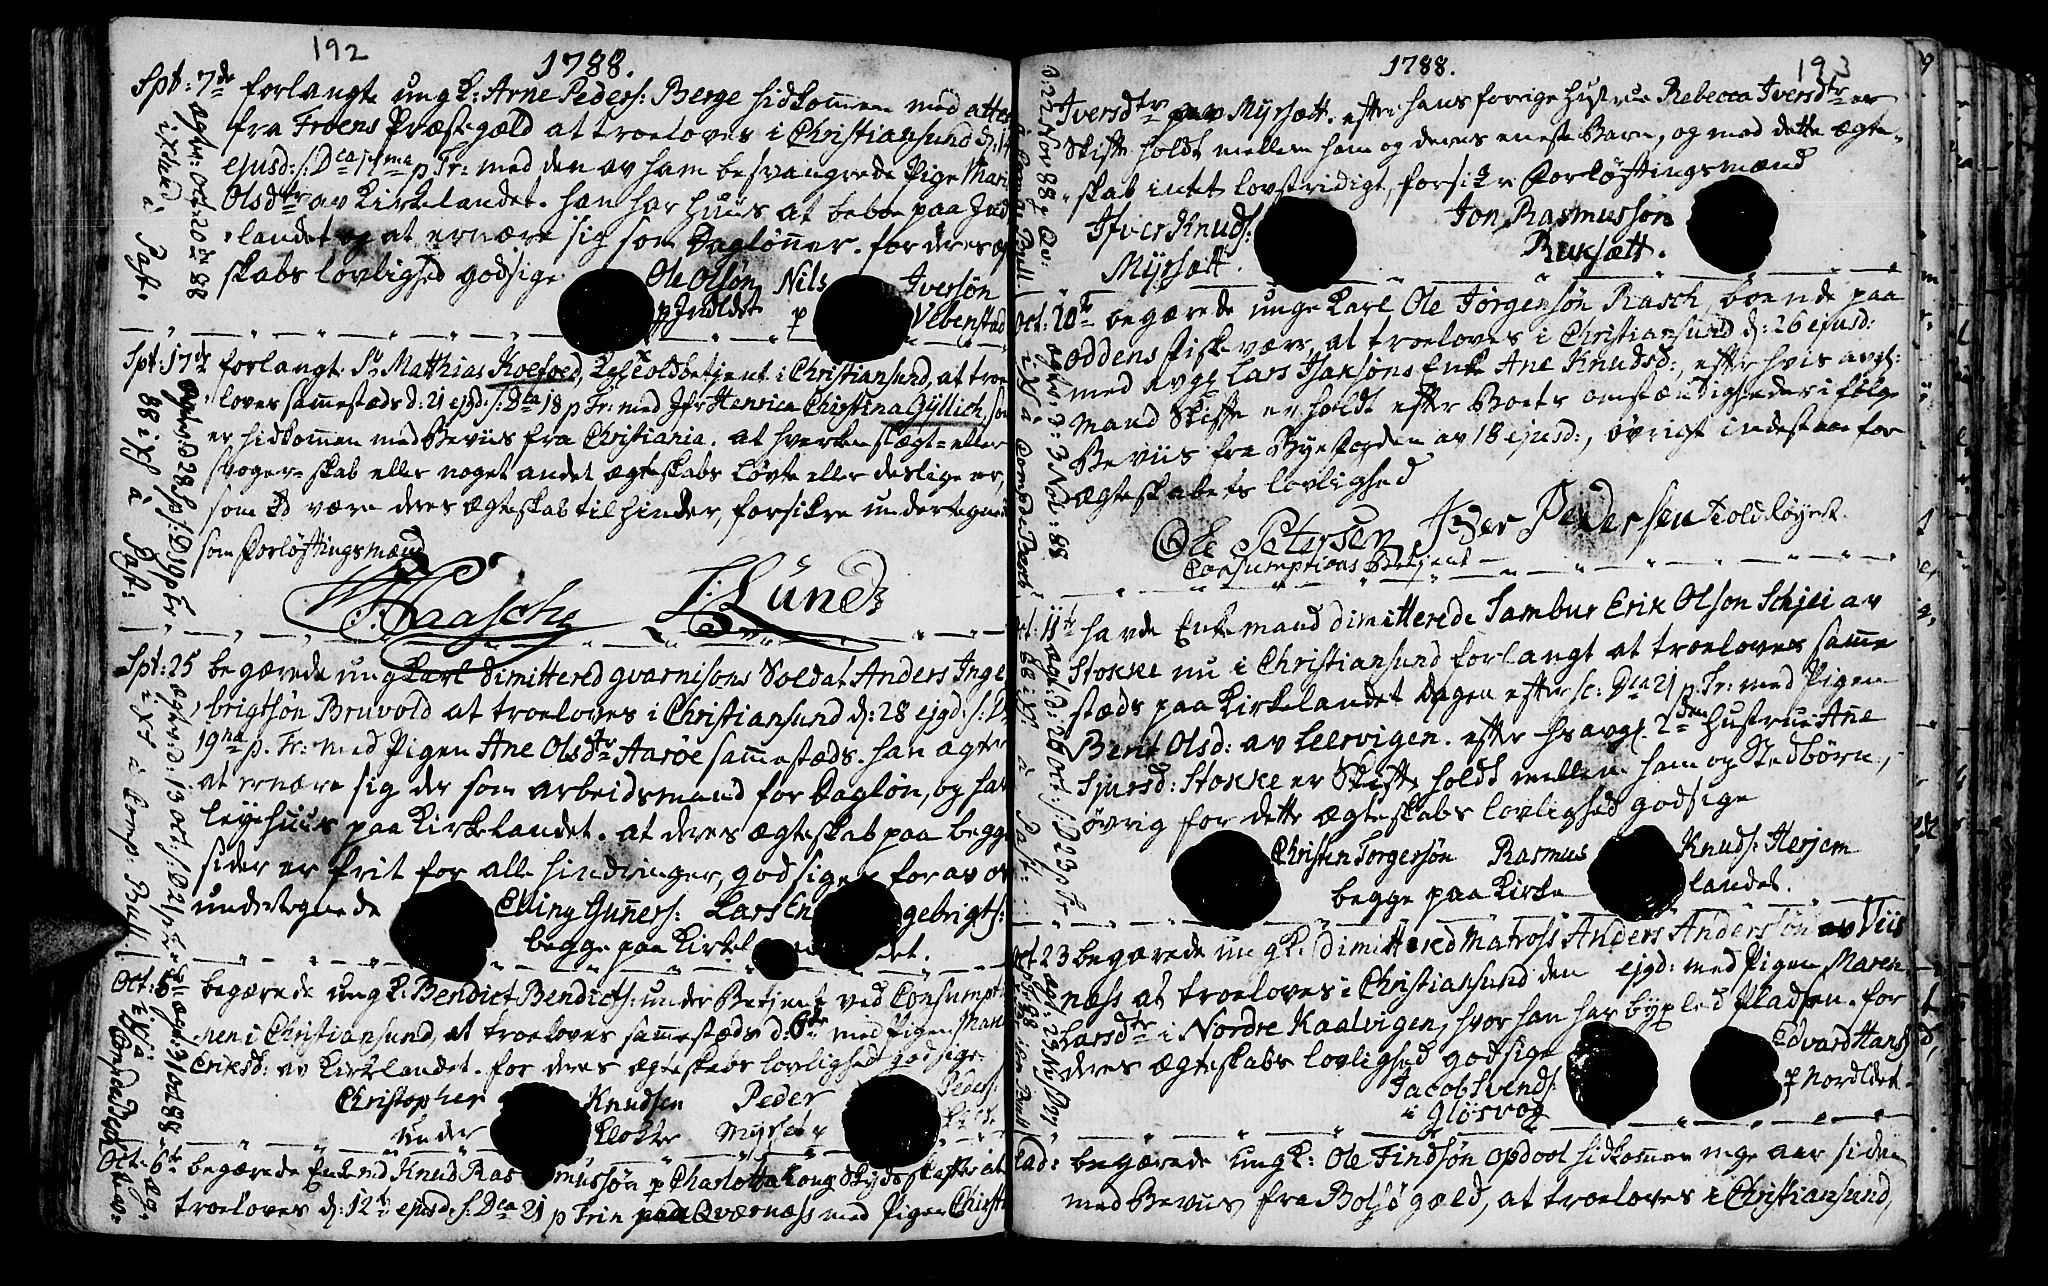 192
1788.
Spt: 7de forlangte ung K: Arne Peders: Berge hidkommen med attest
fra Froens Præstegæld at troeloves i Christiansund d: 14
ejusd: s: Dca 17ma p Tr: med den av ham besvangrede Pige Mari
Olsdtr av Kirkelandet. han har Huus at beboe paa Ind
landet og at ernære sig som Daglønner. for deres æg
skabs lovlighed godsige
Ole Olsøn Nils Iversøn
p Indldet p Vebenstad
ægtv: Oct: 20de 88
i Xsund à Past.
Spt: 17de forlangte Sr Matthias Koefoed, Kgl Toldbetjent i Christiansund, at troe
loves sammestæds d: 21 ejgd: s: Dca 18 p Tr: med Jfr Henrica Christina Gyllich, som
er hidkommen med Beviis fra Christiania. at hverken slægt= eller
svoger= skab eller noget andet ægteskabs løvte eller deslige er,
som kd være deres ægteskab til hinder, forsikre undertegnede
som Forløftingsmænd
Haasche J. Lund
ægtv: d 28 Sp: s: D 19 p Tr.
88 i X à Past:
Spt: 25 begærede ung Karl dimittered gvarnisons Soldat Anders Inge
brigtsøn Bruvold at troeloves i Christiansund d: 28 ejgd: s: D
19na p. Tr: med Pigen Ane Olsdtr Aarøe sammestæds. han agter
at ernære sig der som arbeidsmand for Dagløn, og har
leyehuus paa Kirkelandet. at deres ægteskab paa begge
sider er frit for alle hindringer, godsiger forav
undertegnede Elling Gunners: Lars Engebrigts:
begge paa Kirkelandet.
ægtv: d: 13 Oct: s: D 21 p Tr:
i X à Comp: Bull.
Oct: 5 begærede ung K: Bendict Bendicts: under Betjent ved Consumpt
nen i Christiansund, at troeloves sammestæds d. 6te med Pigen Maren
Eriksd: av Kirkelandet. for deres ægteskabs lovlighed godsige
Christopher Knudsen Peder Peders:
under Klokker
ægtv: 31 Oct 88
Oct: 6te begærede Enkemd Knud Rasmussøn p Charlotta Kong Skydsskaffer at
troeloves d: 12te ejusd, s: Dca 21 p Trin paa Qværnæss med Pigen Christ
1788.
193
Iversdtr paa Myrsætt. efter hans forrige Hustrue Rebecca Iversdtr er
Skifte holdt mellem ham og deres eneste Barn, og mod dette ægte-
skab intet lovstridigt, forsikre Forløftingsmænd
Ifver Knuds: Jon Rasmussøn
Myrsætt. Ruksætt.
d: 22 Nov 88
Oct: 20de begærede unge Karl Ole Jørgensøn Rasch, boende paa
oddens fiskevær, at troeloves i Christiansund d: 26 ejusd:
med avg: Lars Isaksøns Enke Ane Knudsd:, efter hvis avg:
Mand Skifte er holdt efter Boets omstændigheder i følge
Beviis fra Byefogden av 18 ejusd:, øvrigt indestaae for
ægteskabets lovlighed
Ole Petersen Iver Pedersen Toldkøyert
Consumptions Betjent
ægtv: d: 3 Nov: 88
Oct: 11te havde Enkemand dimitterede Tambur Erik Olson Schjei av
Stokke nu i Christiansund forlangt at troeloves samme
stæds paa Kirkelandet dagen efter s: Dca 21 p: Tr: med Pigen
Berit Olsd: av Leervigen. efter hs avg: 2den Hustrue Ane
Sjursd: Stokke er Skifte holdt mellem ham og Stedbørn,
øvrig for dette ægteskabs lovlighed godsige
Christen Torgersøn Rasmus Knuds: Herjem
begge paa Kirkelandet.
Oct 23 begærede ung K: dimittered Matross Anders Andersøn av Viis
næss at troeloves i Christiansund den ejgd: med Pigen Maren
Larsdtr i Nordre Kaalvigen, hvor han har bypled Pladsen. for
deres ægteskabs lovlighed godsige Edvard Hans:
Jacob Svends: p Nordldet.
i Gløsvog
Ead: begærede ung K: Ole Findsøn Opdool hidkommen nge aar siden
med Beviis fra Bolsø gæld, at troeloves i Christiansund,